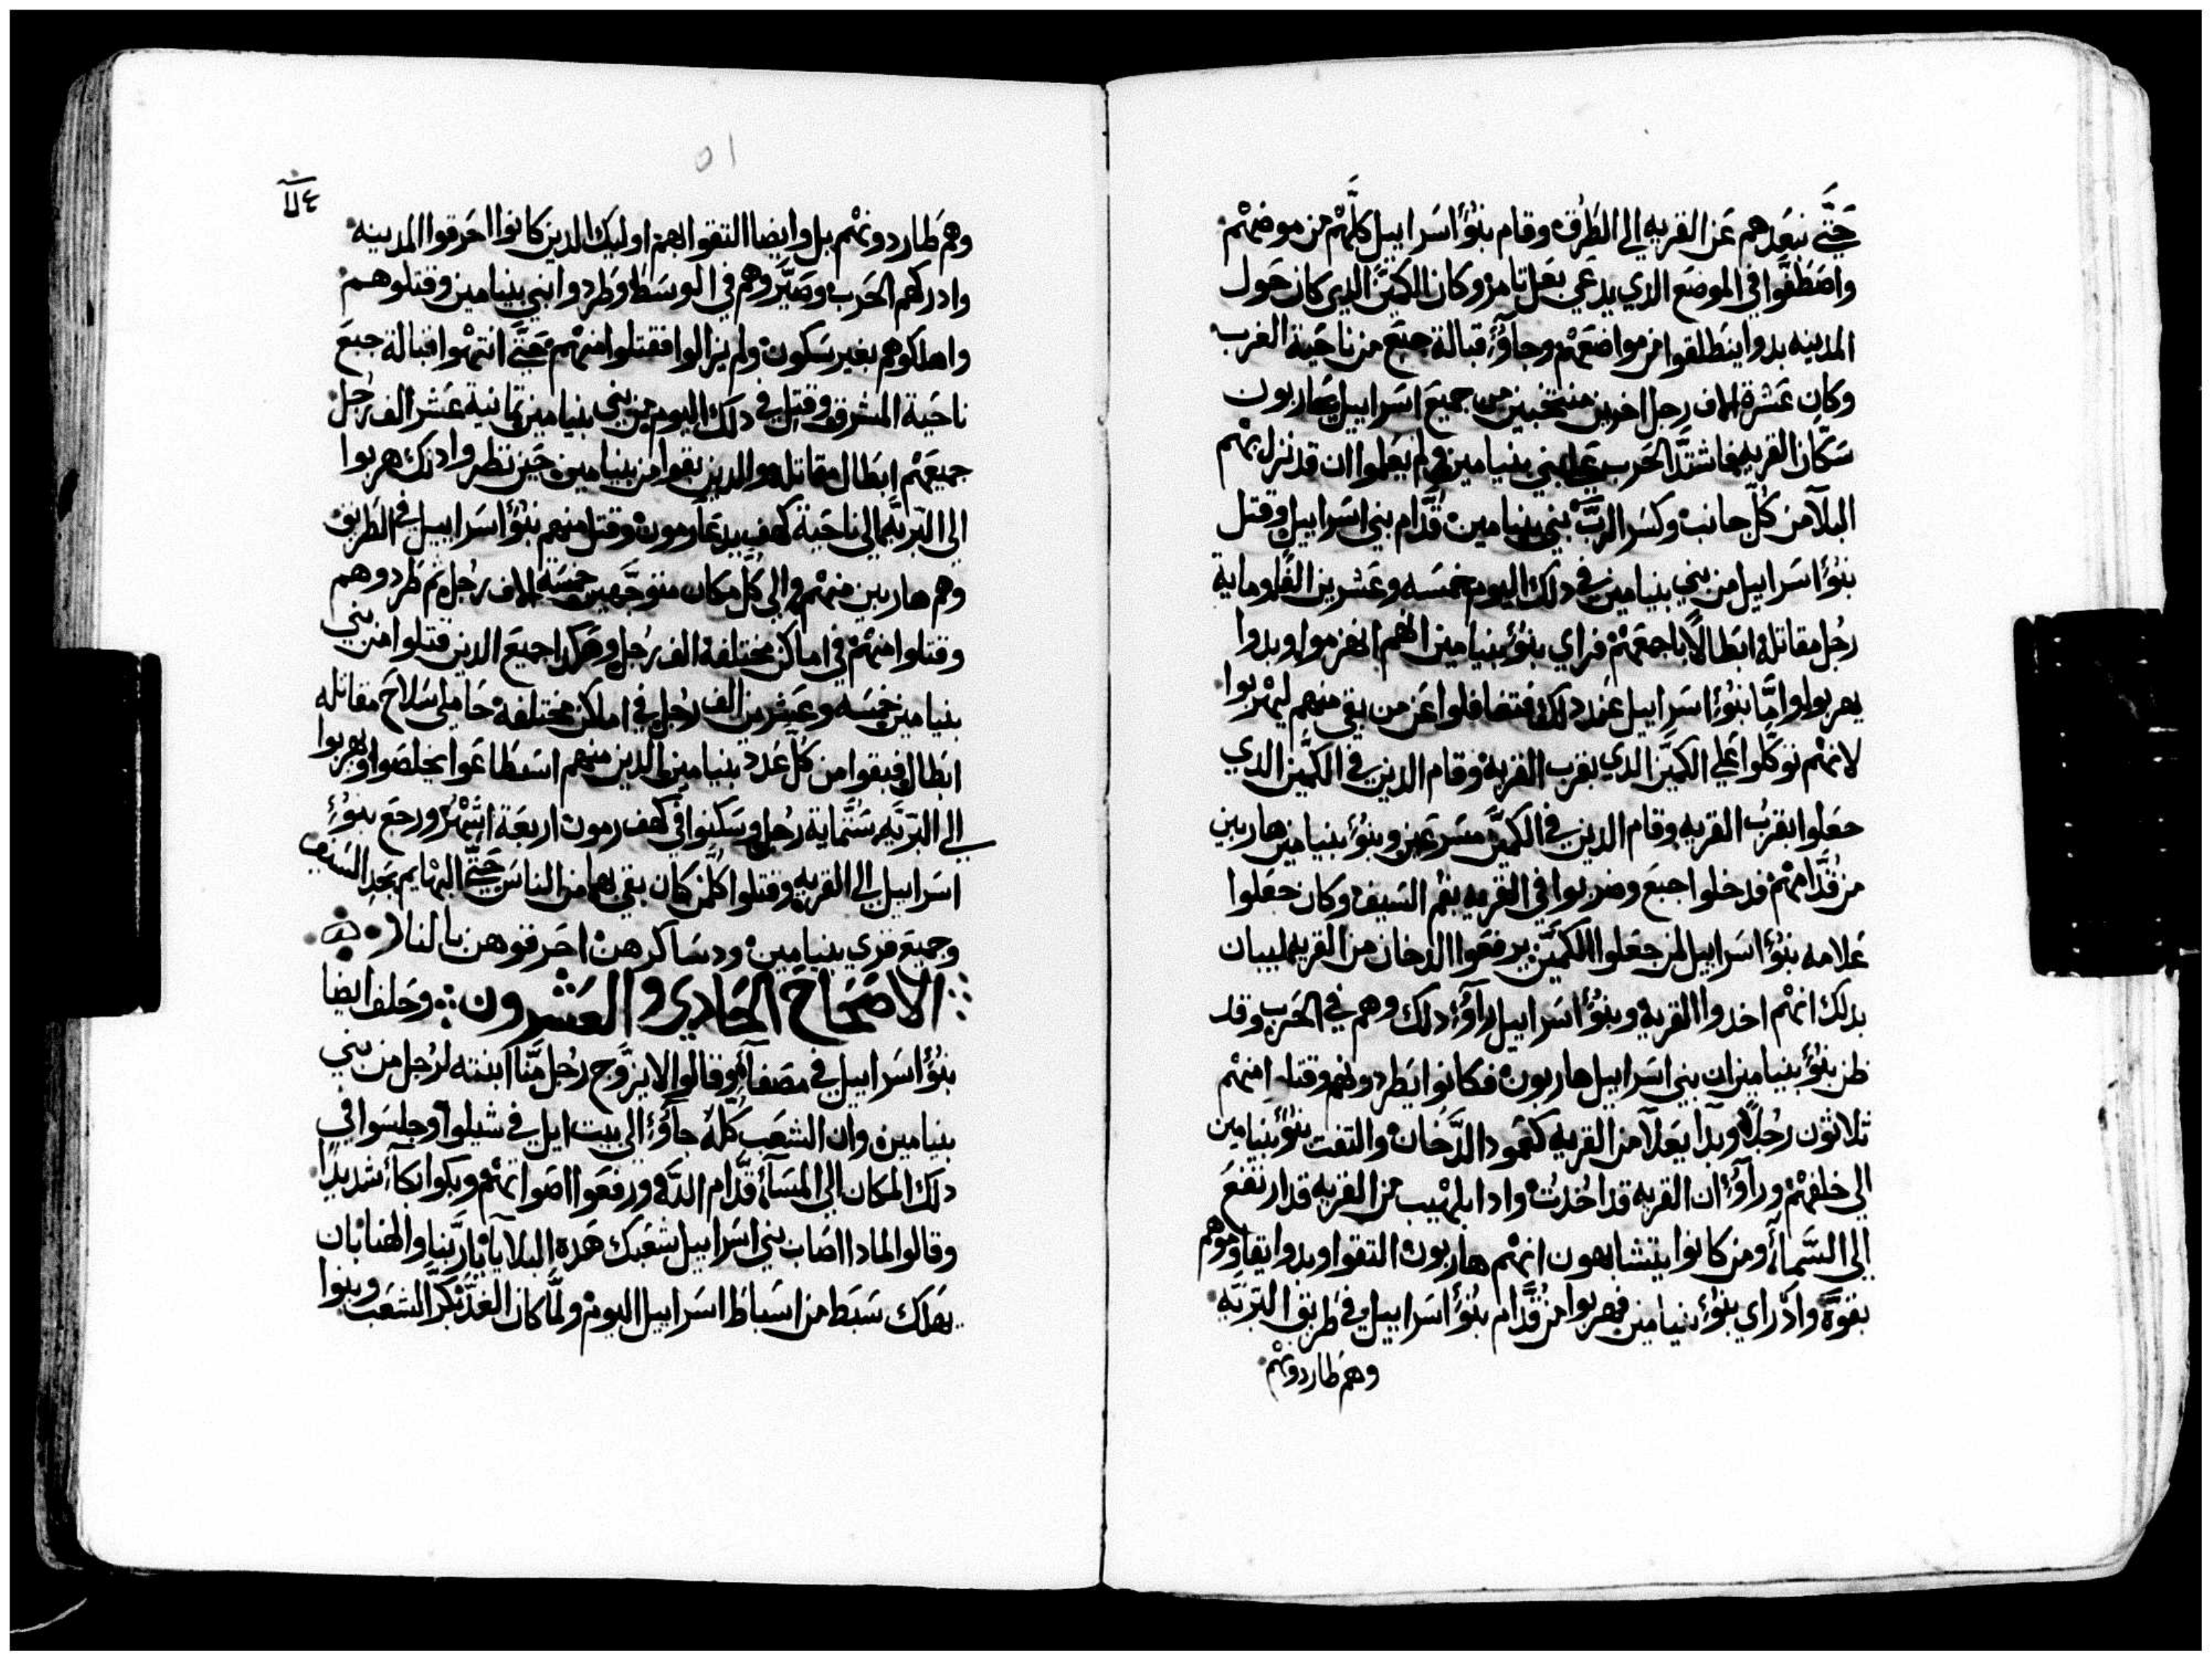 حَتَّي نبعَدهم عَن القريه الي الطَرق وقام بنُؤُا اسَراييل كلّهم من موضعهْم
واصَطفّوا في الموضَع الدي يدعَي بعَل تامر وكان الكمّين الدي كان حَول
المدينه بدوا ينطَلقوا من مواضعَهم وجاؤُ قبالة جبعَ من ناحَية الغرب
وكان عَشرة الاف رجل اخرين منتخبين من جميعَ اسَراييل يحَاربون
سَكّان القريه فاشتدّ الحَرب عَلي بني بنيامين ولم يعَلموا ان قد نزل بهم
البلا من كلّ جانب وكسَر الربّ بني بنيامين قُدّام بني اسَراييل وقتل
بنؤُا اسَراييل من بني بنيامين في دلك اليوم خمسَه وعَشرين الفًا وماية
رجُل مقاتله ابَطالاً باجمعَهم فراي بنؤُ بنيامين انهّم انهزموا وبدوا
يهربوا وامَّا بنؤُا اسَراييل عَند دلك فتغافلوا عَن من بقي منهم ليهربوا
لانهم توكّلوا عَلي الكمّين الدي بقرب القريه وقام الدين في الكمّين الدي
جعَلوا بقرُب القريه وقام الدين في الكمّين مسَرعَين وبنؤُ بنيامين هاربين
من قُدّامهمْ فدخلوا جبعَ وضربوا في القريه بفم السَيف وكان جعَلوا
عَلامه بنؤُا اسَراييل لمن جعَلوا الكمّين يرفعَوا الدخان من القريه لبيان
بدلك انهم اخدوا القريه وبنؤُا اسَراييل راؤُ دلك وهم في الحَرب وقد
ظن بنؤُ بنيامين ان بني اسَراييل هاربون فكانوا يَطردونهم وقتل منهم
تلاثون رجُلاً وبدا يعَلا من القريه كعَمود الدَّخان والتفت بنؤُ بنيامين
الي خلفهْم وراؤُ ان القريه قد اخُدتْ وادا بلهْيب من القريه قد ارتفعَ
الي السَّماءٔ ومن كانوا يتشابهون انهم هاربون التقوا وبدوا يقاوموهم
بقوّة واد راي بنؤُ بنيامين فهربوا من قُدّام بنُؤُا اسَراييل وفي طَريق البَرّيّه
وهم طَاردونهم
١٥
وهم طَاردونهْم بل وايضا التقوا بهم اوليك الدين كانوا احَرقوا المدينه
وادركهم الحَرب وصَيّروهم في الوسَط وطَردوا بني بنيامين وقتلوهم
واهلكوهم بغير سَكون ولم يزالوا فقتلوا منهم حَتيّ انتهوا قبالة جبعَ
ناحَية المشرق وقتل في دلك اليوم من بني بنيامين تمانية عَشر الف رجُل
جميعَهْم ابَطال مقاتله والدين بقوا من بنيامين حَين نظروا دلك هربوا
الي البّريّه الي ناحَية كهف يدعَا رمون وقتل منهم بنؤُا اسَراييل في الطَريق
وهم هاربين منهم والي كلّ مكان متوجّهين خمسَه الاف رجُل ثم طَردوهم
وقتلوا منهم في اماكن مختلفة الف رجُل وهَكدا جميعَ الدين قتلوا من بني
بنيامين خمسَه وعَشرين الف رجُل في اماكن مختلفة حَاملي سَلاحَ مقاتله
ابَطال فبقوا من كلّ عَدد بنيامين الدين منهم اسَتطَاعَوا يخلصَوا ويهربوا
الي البرّيّه سَتّماية رجُل وسَكنوا في كهف رمون اربعَة اشهُر ورجعَ بنؤُ
اسَراييل الي القريه وقتلوا كلّمن كان بقي بها من الناسَ حَتيّ البهايم بحَد السَيف
وجميعَ قري بنيامين ودسَاكرهن احَرقوهن بالنار
الاصَحَاحَ الحَادي والعَشرون وحَلف ايضا
بنؤُا اسَراييل في مصَفاه وقالوا لا يزَوّج رجُل منَّا ابنته لرجُل من بني
بنيامين وان الشعَب كلّه جاؤُ الي بيت ايل في شيلوا وجلسَوا في
دلك المكان الي المسَاءٔ قدّام اللّه ورفعَوا اصَواتهم وبكوا بكاءٔ شديدًا
وقالوا لمادا اصَاب بني اسَراييل شعَبك هَده البلايا يا ربّنا والهنا بان
يهَلك سَبط من اسَباطَ اسَراييل اليوم ولَمّا كان الغد بكّر الشعَب وبنوا